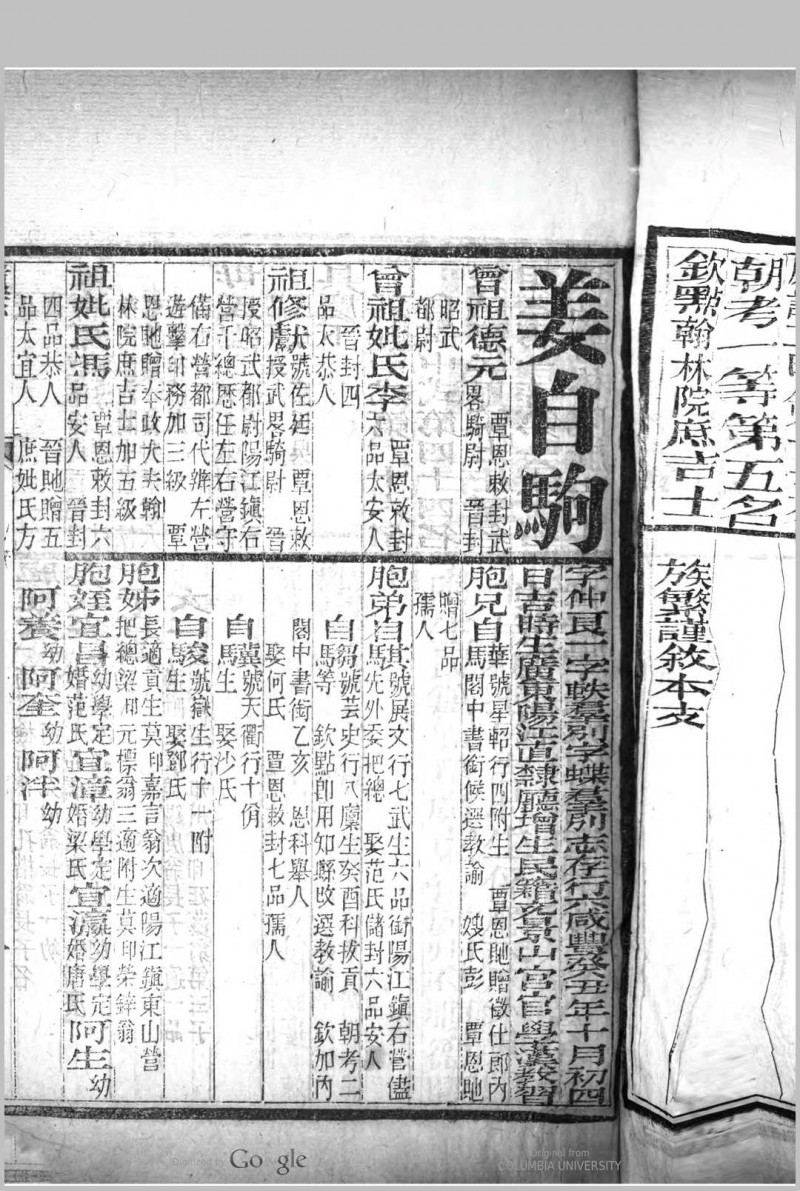 朝考一等第五名
欽點翰林院庶吉士
族繁謹敘本支
姜自駒
字仲良一字軼羣別字蝶羣別志存行六咸豐癸丑年十月初四
日吉時生廣東陽江直隸廳增生民籍名景山官官學漢教習
曾祖德元
覃恩敕封武
畧騎尉 晉封
昭武
都尉
曾祖妣氏李
覃恩敕封
六品太安人
晉封四
品太恭人
祖修猷號佐廷 覃恩敕
授武畧騎尉 晉
授昭武都尉陽江鎮右
營千總歷任左右營守
備右營都司代辦左營
遊擊印務加三級 覃
恩貤贈奉政大夫翰
林院庶吉士加五級
祖妣氏馮
覃恩敕封六
品安人 晉封
四品恭人 晉貤贈五
品太宜人 庶妣氏方
胞兄自
華號星軺行四附生 覃恩貤贈徵仕郎內
馬閣中書銜候選教諭 嫂氏彭 覃恩貤
贈七品
孺人
胞弟自
騏號展文行七武生六品銜陽江鎮右營儘
先外委把總 娶范氏儲封六品安人
自
芻號芸史行八廩生癸酉科拔貢 朝考二
馬等 欽點即用知縣改選教諭 欽加內
閣中書銜乙亥 恩科舉人
娶何氏 覃恩敕封七品孺人
自
冀號天衢行十佾
馬生 娶沙氏
自
駿號嶽生行十一附
生 娶鄧氏
胞姊
妹
長適貢生莫印嘉言翁次適陽江鎮東山營
把總梁印元標翁三適附生莫印榮鋅翁
胞姪宜昌
幼學定
婚范氏
宜漳
幼學定
婚梁氏
宜瀛
幼學定
婚唐氏
阿生幼
阿養幼 阿奎幼 阿泮幼
Google
Original from
COLUMBIA UNIVERSITY